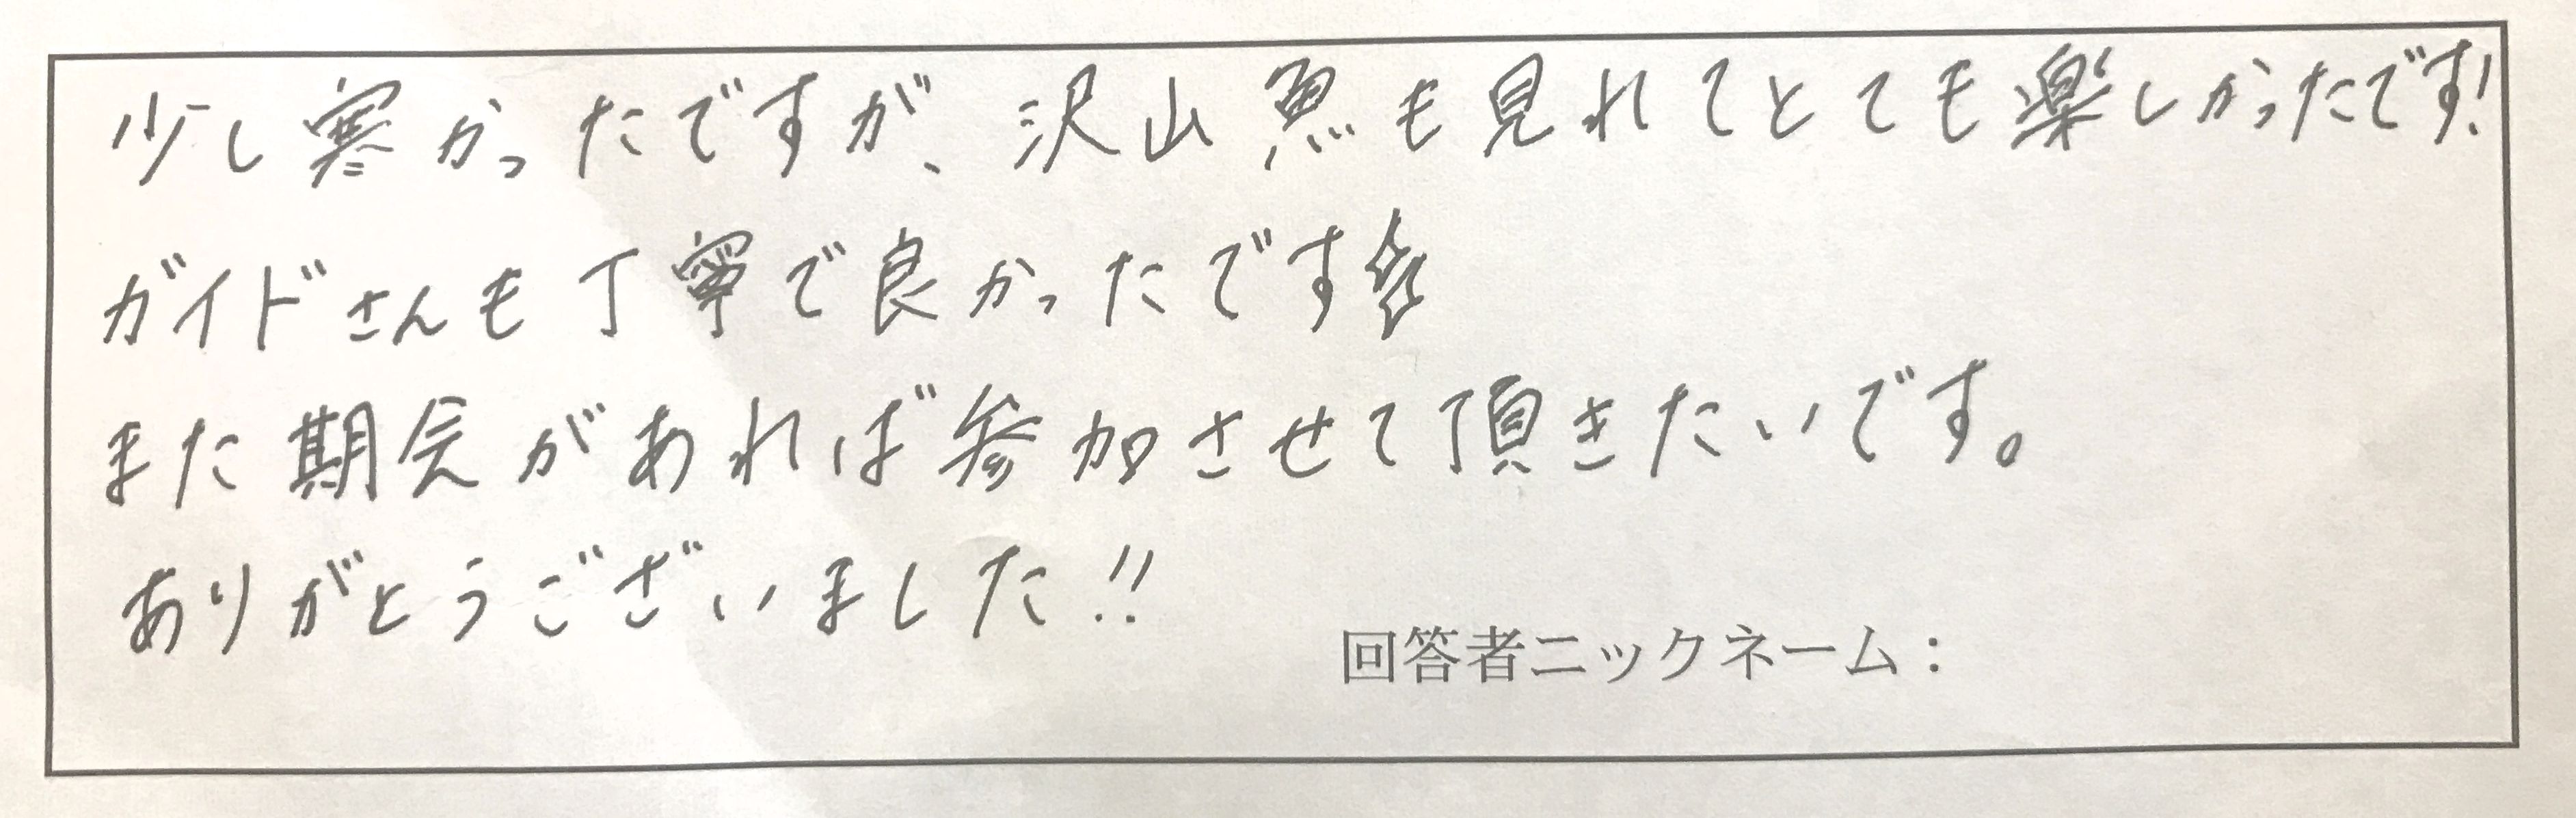 少し寒かったですが、沢山魚も見れてとても楽しかったです!
ガイドさんも丁寧で良かったです
また期会があれば参加させて頂きたいです。
ありがとうございました!!
回答者ニックネーム：